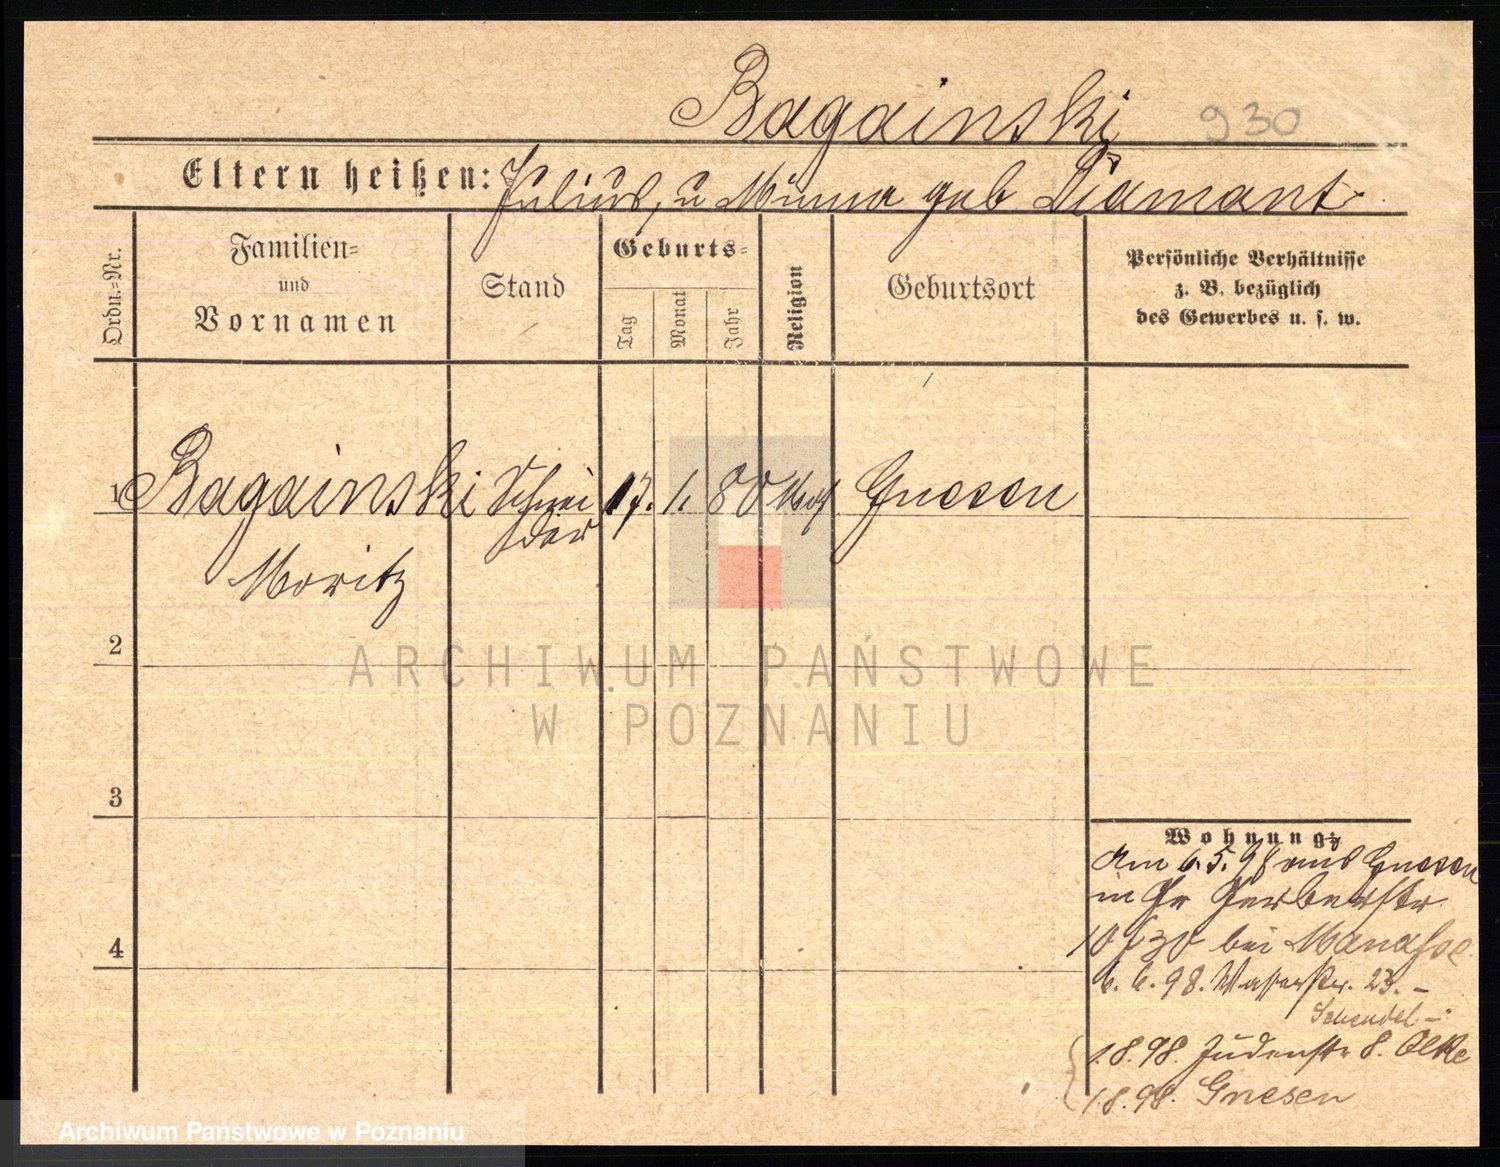 Bagainski 930
Eltern heißen: Julius, u Minna geb Diamant
Ordn.=Nr.
Familien=
und
Vornamen
Stand
Geburts=
Tag
Monat
Jahr
Religion
Geburtsort
Persönliche Verhältnisse
z. B. bezüglich
des Gewerbes u. s. w.
1 Bagainski Schnei 17. 1. 80 Mos Gnesen
der
Moritz
2
3
4
Wohnung:
Am 6.5.98 aus Gnesen
in Gr Gerberstr
bei Manasse
6.6.98. Wasserstr. 23. –
Schendel –
1.8.98. Judenstr 8.
1.8.98. Gnesen
ARCHIWUM PAŃSTWOWE
W POZNANIU
Archiwum Państwowe w Poznaniu